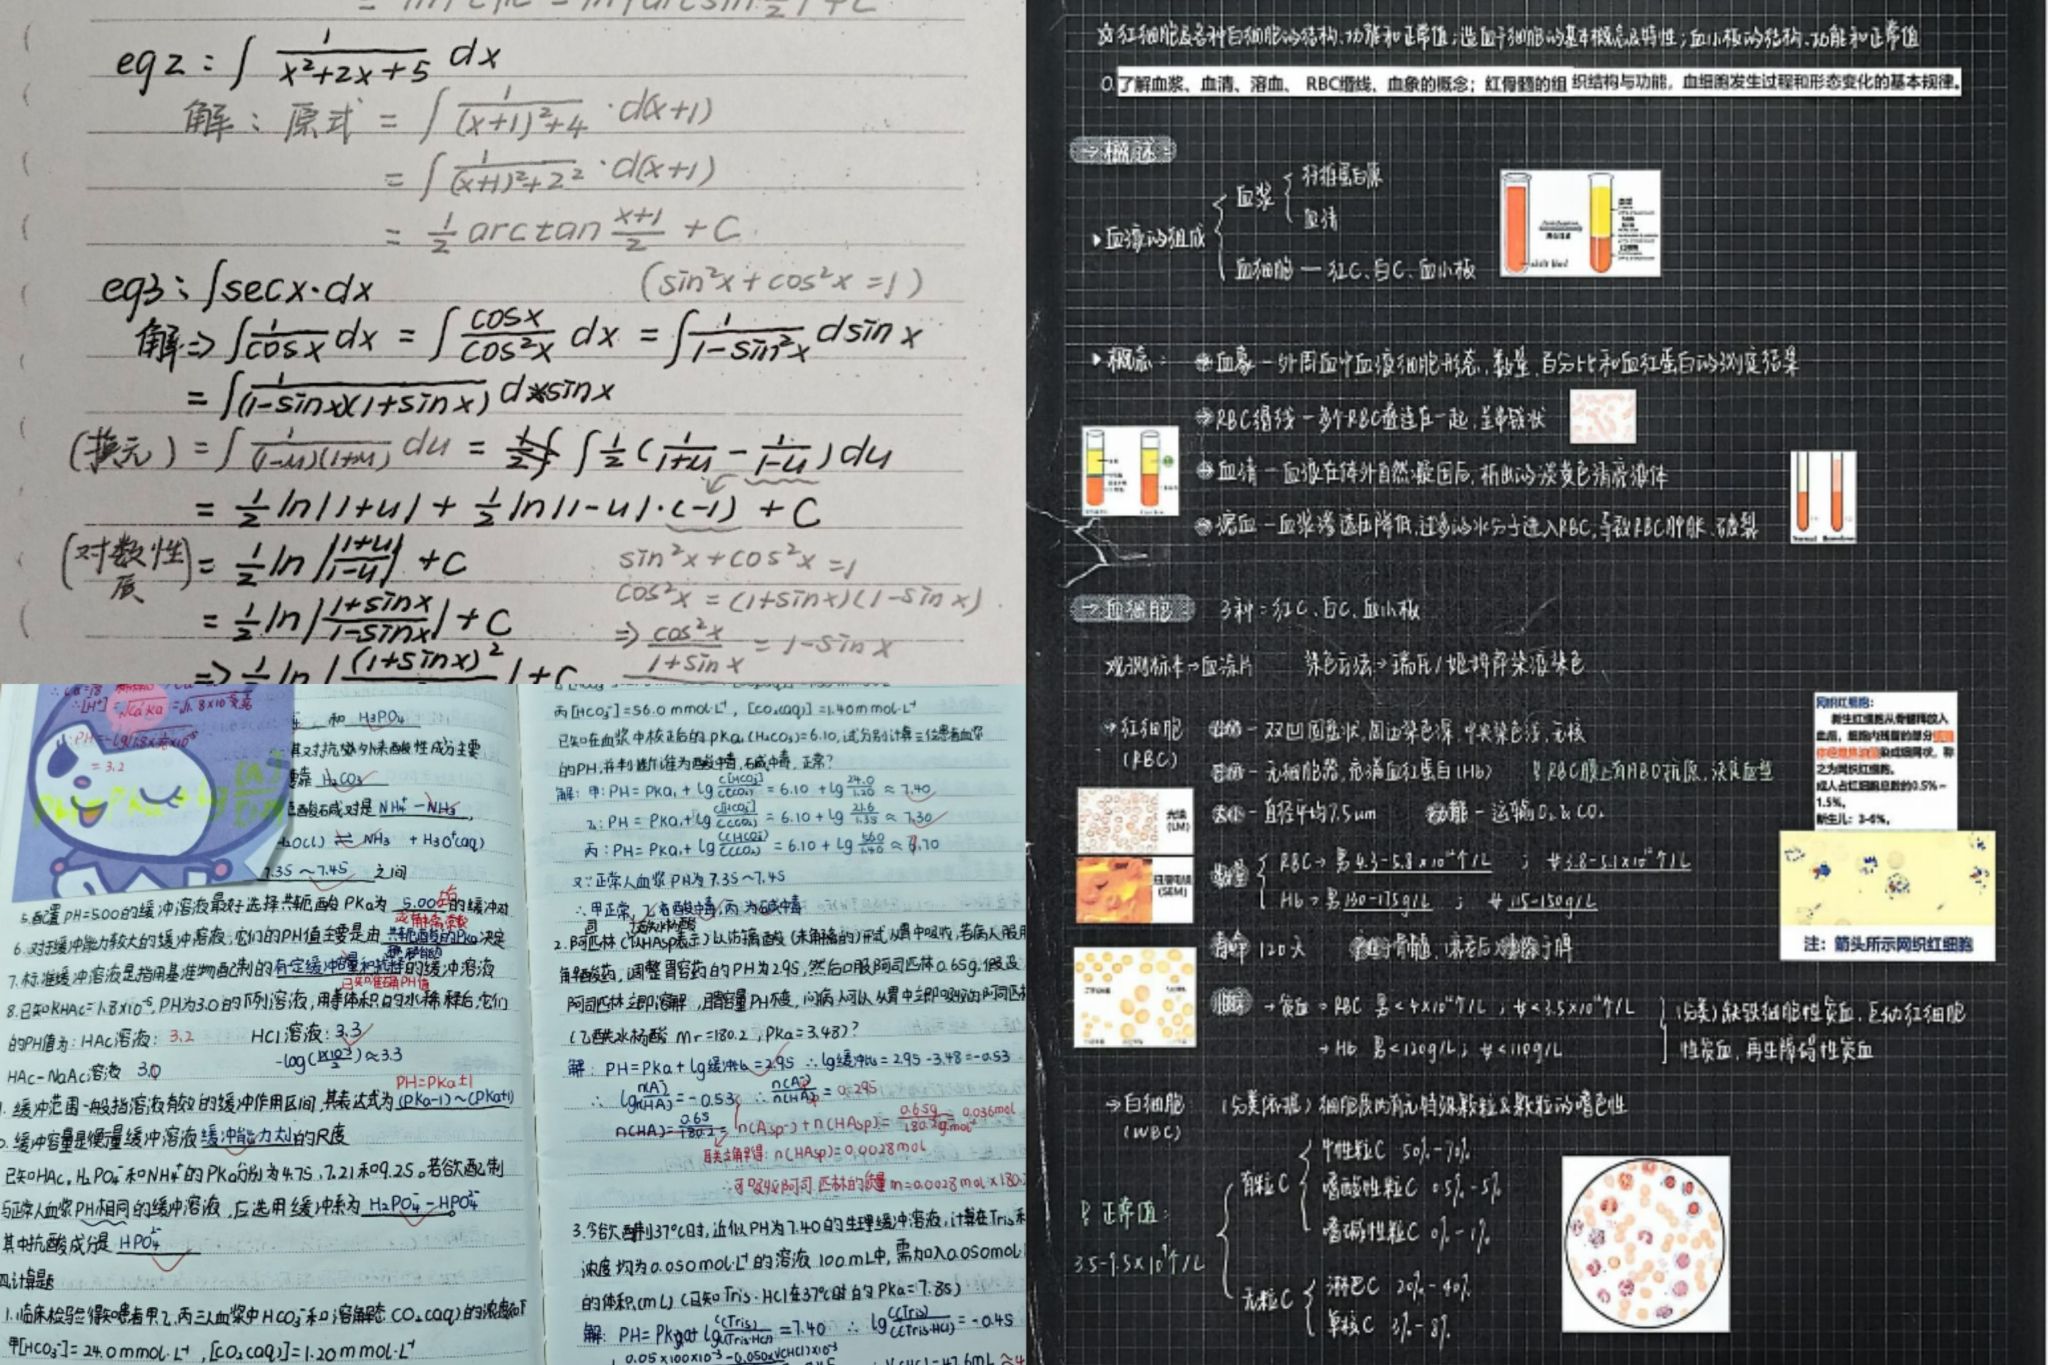 eg2: ∫ 1/(x²+2x+5) dx
解: 原式 = ∫ 1/((x+1)²+4) · d(x+1)
= ∫ 1/((x+1)²+2²) · d(x+1)
= 1/2 arctan (x+1)/2 + C
eg3: ∫secx·dx (sin²x+cos²x=1)
解⇒ ∫ 1/cosx dx = ∫ cosx/cos²x dx = ∫ 1/(1-sin²x) dsinx
= ∫ 1/((1-sinx)(1+sinx)) dsinx
(换元) = ∫ 1/((1-u)(1+u)) du = ∫ 1/2 (1/(1+u) - 1/(1-u)) du
= 1/2 ln|1+u| + 1/2 ln|1-u|·(-1) + C
(对数性质) = 1/2 ln|(1+u)/(1-u)| + C
sin²x+cos²x=1
cos²x=(1+sinx)(1-sinx)
= 1/2 ln|(1+sinx)/(1-sinx)| + C
⇒ cos²x/(1+sinx) = 1-sinx
和 H₃PO₄
H₂CO₃
NH₄⁺-NH₃
H₂O(l) ⇌ NH₃ + H₃O⁺(aq)
7.35~7.45 之间
5.配置PH=5.00的缓冲溶液最好选择共轭酸PKa为 5.00左右 的缓冲对
6.对于缓冲能力较大的缓冲溶液,它们的PH值主要是由 共轭酸的PKa 决定
7.标准缓冲溶液是指用基准物配制的有定缓冲容量和抗稀的缓冲溶液
已知准确PH值
8.已知KHAc=1.8×10⁻⁵,PH为3.0的下列溶液,用等体积的水稀释后,它们
的PH值为: HAc溶液: 3.2 HCl溶液: 3.3
HAc-NaAc溶液 3.0 -log(1×10⁻³/2)≈3.3
PH=PKa±1
缓冲范围一般指溶液有效的缓冲作用区间,其表达式为(PKa-1)~(PKa+1)
缓冲容量是衡量缓冲溶液缓冲能力大小的尺度
已知HAc,H₂PO₄⁻和NH₄⁺的PKa分别为4.75,7.21和9.25。若欲配制
与正常人血浆PH相同的缓冲溶液,应选用缓冲系为 H₂PO₄⁻-HPO₄²⁻
其中抗酸成分是 HPO₄²⁻
四.计算题
1.临床检验得知患者甲.乙.丙三人血浆中HCO₃⁻和溶解态CO₂(aq)的浓度如下
甲[HCO₃⁻]=24.0mmol·L⁻¹,[CO₂(aq)]=1.20mmol·L⁻¹
丙[HCO₃⁻]=56.0mmol·L⁻¹,[CO₂(aq)]=1.40mmol·L⁻¹
已知在血浆中校正后的pKa₁(H₂CO₃)=6.10,试分别计算三位患者血浆
的PH,并判断谁为酸中毒,碱中毒,正常?
解: 甲: PH=PKa₁+lg c[HCO₃⁻]/c(CO₂)=6.10+lg 24.0/1.20≈7.40
乙: PH=PKa₁+lg c[HCO₃⁻]/c(CO₂)=6.10+lg 21.6/1.35≈7.30
丙: PH=PKa₁+lg c[HCO₃⁻]/c(CO₂)=6.10+lg 56.0/1.40≈7.70
又∵正常人血浆PH为7.35~7.45
∴甲正常,乙为酸中毒,丙为碱中毒
2.阿匹林(以HAsp表示)以游离酸(未解离的)形式从胃中吸收,若病人服用
解酸药,调整胃容药的PH为2.95,然后口服阿司匹林0.65g.假设
阿司匹林立即溶解,且胃容量PH不变,问病人可以从胃中立即吸收的阿司匹林
(乙酰水杨酸 Mr=180.2,PKa=3.48)?
解: PH=PKa+lg缓冲比=2.95 ∴lg缓冲比=2.95-3.48=-0.53
∴ lg n(A⁻)/n(HA)=-0.53 ∴ n(A⁻)/n(HA)=0.295
n(HA)=0.65/180.2= n(Asp⁻)+n(HAsp)=0.65g/180.2g·mol⁻¹=0.036mol
联立解得: n(HAsp)=0.0028mol
∴可吸收阿司匹林的质量m=0.0028mol×180.
3.今欲配制37℃时,近似PH为7.40的生理缓冲溶液,计算在Tris和
浓度均为0.050mol·L⁻¹的溶液100mL中,需加入0.050mol·
的体积(mL)(已知Tris·HCl在37℃时的PKa=7.85)
解: PH=PKa+lg c(Tris)/c(Tris·HCl)=7.40 ∴ lg c(Tris)/c(Tris·HCl)=-0.45
☆红细胞及各种白细胞的结构、功能和正常值;造血干细胞的基本概念及特性;血小板的结构、功能和正常值
O.了解血浆、血清、溶血、RBC缗线、血象的概念;红骨髓的组 织结构与功能,血细胞发生过程和形态变化的基本规律。
→概述:
▸血液的组成
血浆 纤维蛋白原
血清
血细胞 — 红C、白C、血小板
▸概念: 血象 — 外周血中血液细胞形态,数量,百分比和血红蛋白的测定结果
RBC缗线 — 多个RBC叠连在一起,呈串钱状
血清 — 血液在体外自然凝固后,析出的淡黄色清亮液体
溶血 — 血浆渗透压降低,过多的水分子进入RBC,导致RBC肿胀、破裂
→血细胞: 3种:红C、白C、血小板
观测标本→血涂片 染色方法→瑞氏/姬姆萨染液染色
→红细胞 (RBC)
结构 — 双凹圆盘状,周边染色深,中央染色浅,无核
无细胞器,充满血红蛋白(Hb) RBC膜上有ABO抗原,决定血型
大小 — 直径平均7.5um 功能 — 运输O₂&CO₂
数量 RBC→男4.3-5.8×10¹²个/L ; 女3.8-5.1×10¹²个/L
Hb→男130-175g/L ; 女115-150g/L
寿命 120天
→贫血→RBC 男<4×10¹²个/L ; 女<3.5×10¹²个/L
→Hb 男<120g/L ; 女<110g/L
(分类)缺铁细胞性贫血,巨幼红细胞
性贫血,再生障碍性贫血
光镜 (LM)
扫描电镜 (SEM)
网织红细胞:
新生红细胞从骨髓释放入
血后,细胞内残留的部分
染成细网状,称
之为网织红细胞。
成人占红细胞总数的0.5%~
1.5%,
新生儿: 3-6%。
注:箭头所示网织红细胞
→白细胞 (WBC)
(分类依据)细胞质内有无特殊颗粒&颗粒的嗜色性
正常值:
3.5-9.5×10⁹个/L
有粒C
中性粒C 50%-70%
嗜酸性粒C 0.5%-5%
嗜碱性粒C 0%-1%
无粒C
淋巴C 20%-40%
单核C 3%-8%